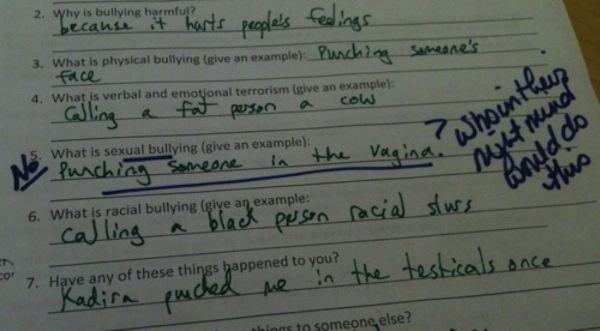 2. Why is bullying harmful?
because it hurts people's feelings
3. What is physical bullying (give an example): Punching someone's
face
4. What is verbal and emotional terrorism (give an example):
Calling a fat person a cow
No 5. What is sexual bullying (give an example):
Punching someone in the vagina.
? Who in their
right mind
would do
this
6. What is racial bullying (give an example:
calling a black person racial slurs
7. Have any of these things happened to you?
Kadira punched me in the testicals once
things to someone else?